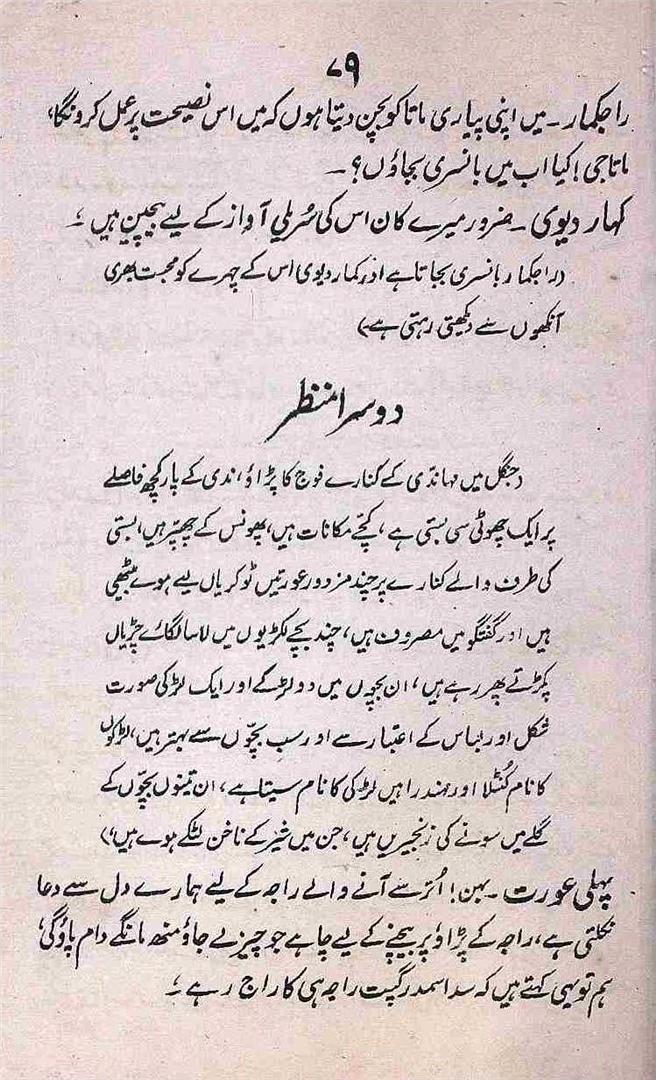 ۷۹
راجکمار۔ میں اپنی پیاری ماتا کو بچن دیتا ہوں کہ میں اس نصیحت پر عمل کرونگا،
ماتا جی! کیا اب میں بانسری بجاؤں؟۔
کہار دیوی۔ ضرور میرے کان اس کی سُریلی آواز کے لیے بیچین ہیں ۔
(راجکمار بانسری بجاتا ہے اور کمار دیوی اس کے چہرے کو محبت بھری
آنکھوں سے دیکھتی رہتی ہے۔)
دوسرا منظر
(جنگل میں مہاندی کے کنارے فوج کا پڑاؤ، ندی کے پار کچھ فاصلے
پر ایک چھوٹی سی بستی ہے، کچے مکانات ہیں، پھونس کے چھپر ہیں، بستی
کی طرف والے کنارے پر چند مزدور عورتیں ٹوکریاں لیے ہوے بیٹھی
ہیں اور گفتگو میں مصروف ہیں، چند بچے لکڑیوں میں لاسا لگائے چڑیاں
پکڑتے پھر رہے ہیں، ان بچوں میں دو لڑکے اور ایک لڑکی صورت
شکل اور لباس کے اعتبار سے اور سب بچّوں سے بہتر ہیں، لڑکوں
کا نام کُنٹلا اور مہندرا ہیں لڑکی کا نام سیتا ہے، ان تینوں بچّوں کے
گلے میں سونے کی زنجیریں ہیں، جن میں شیر کے ناخن لٹکے ہوے ہیں،)
پہلی عورت۔ بہن! اتر سے آنے والے راجہ کے لیے ہمارے دل سے دعا
نکلتی ہے، راجہ کے پڑاؤ پر بیچنے کے لیے چاہے جو چیز لے جاؤ منھ مانگے دام پاؤگی،
ہم تو یہی کہتے ہیں کہ سدا سمدر گپت راجہ ہی کا راج رہے ۔